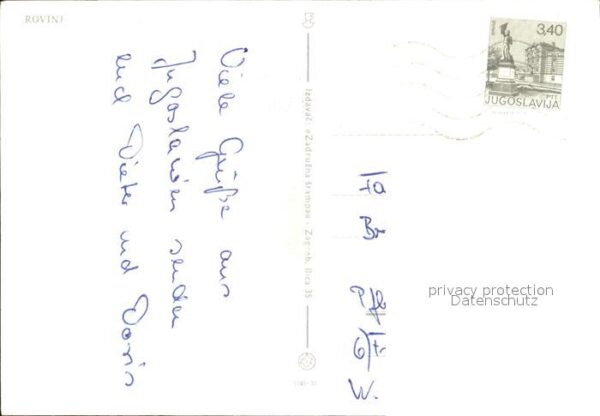 ROVINJ
Viele Grüße aus
Jugoslawien senden
und Dieter und Doris
Izdavač: »Zadružna štampa« - Zagreb, Ilica 35
3,40
PTT
JUGOSLAVIJA
privacy protection
Datenschutz